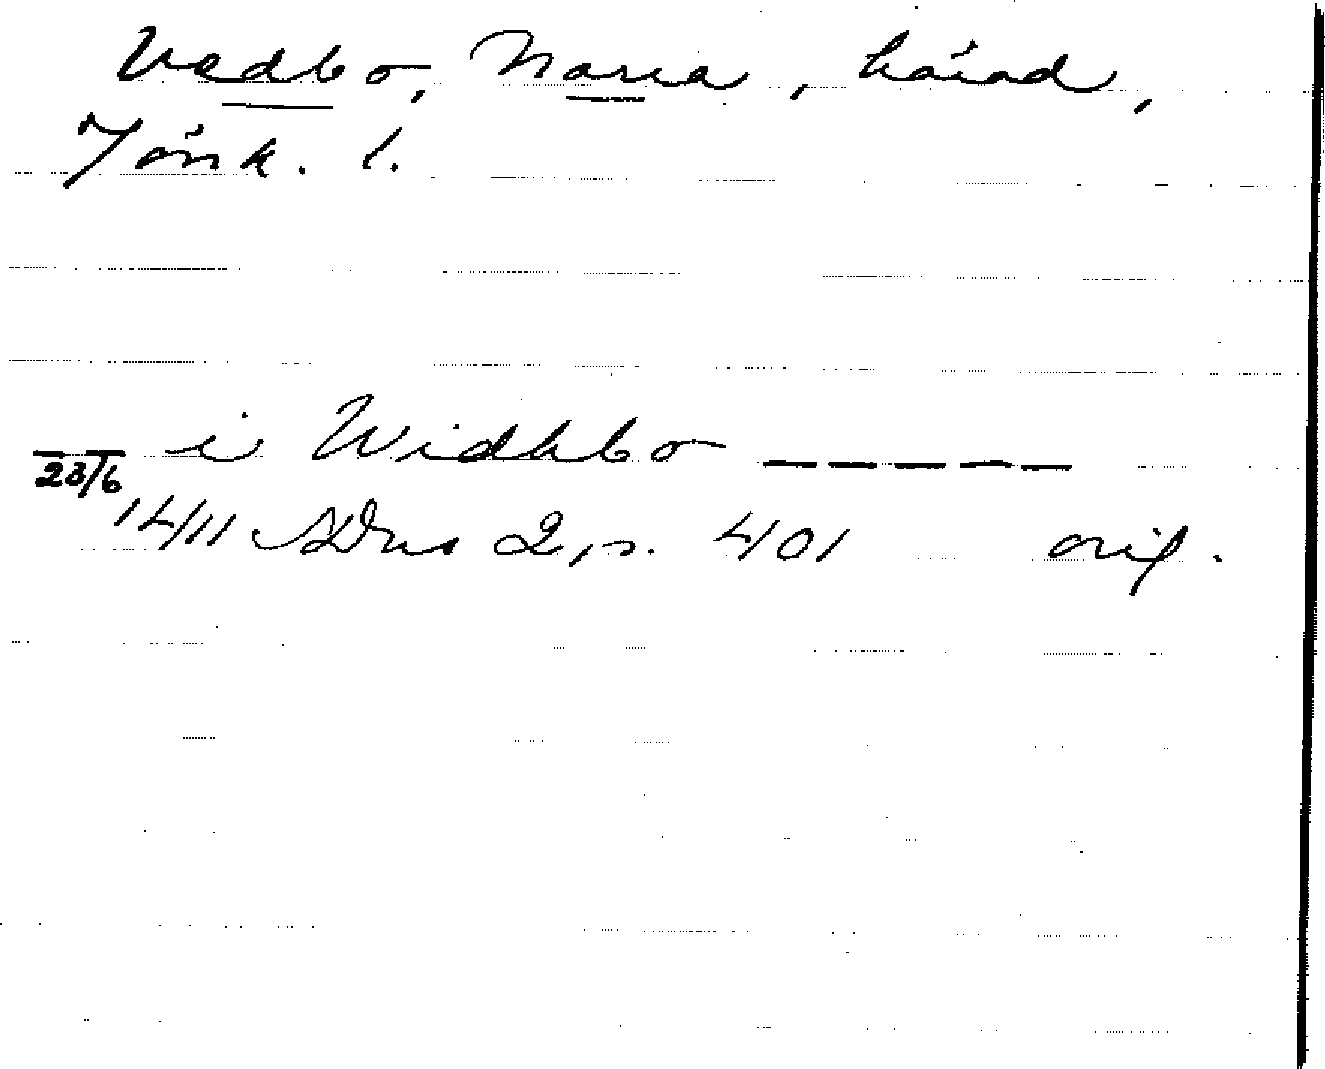 Vedbo, Norra, härad,
Jönk. l.
i Widhbo – – – – –
23/6
1411 SDns 2, s. 401 orig.